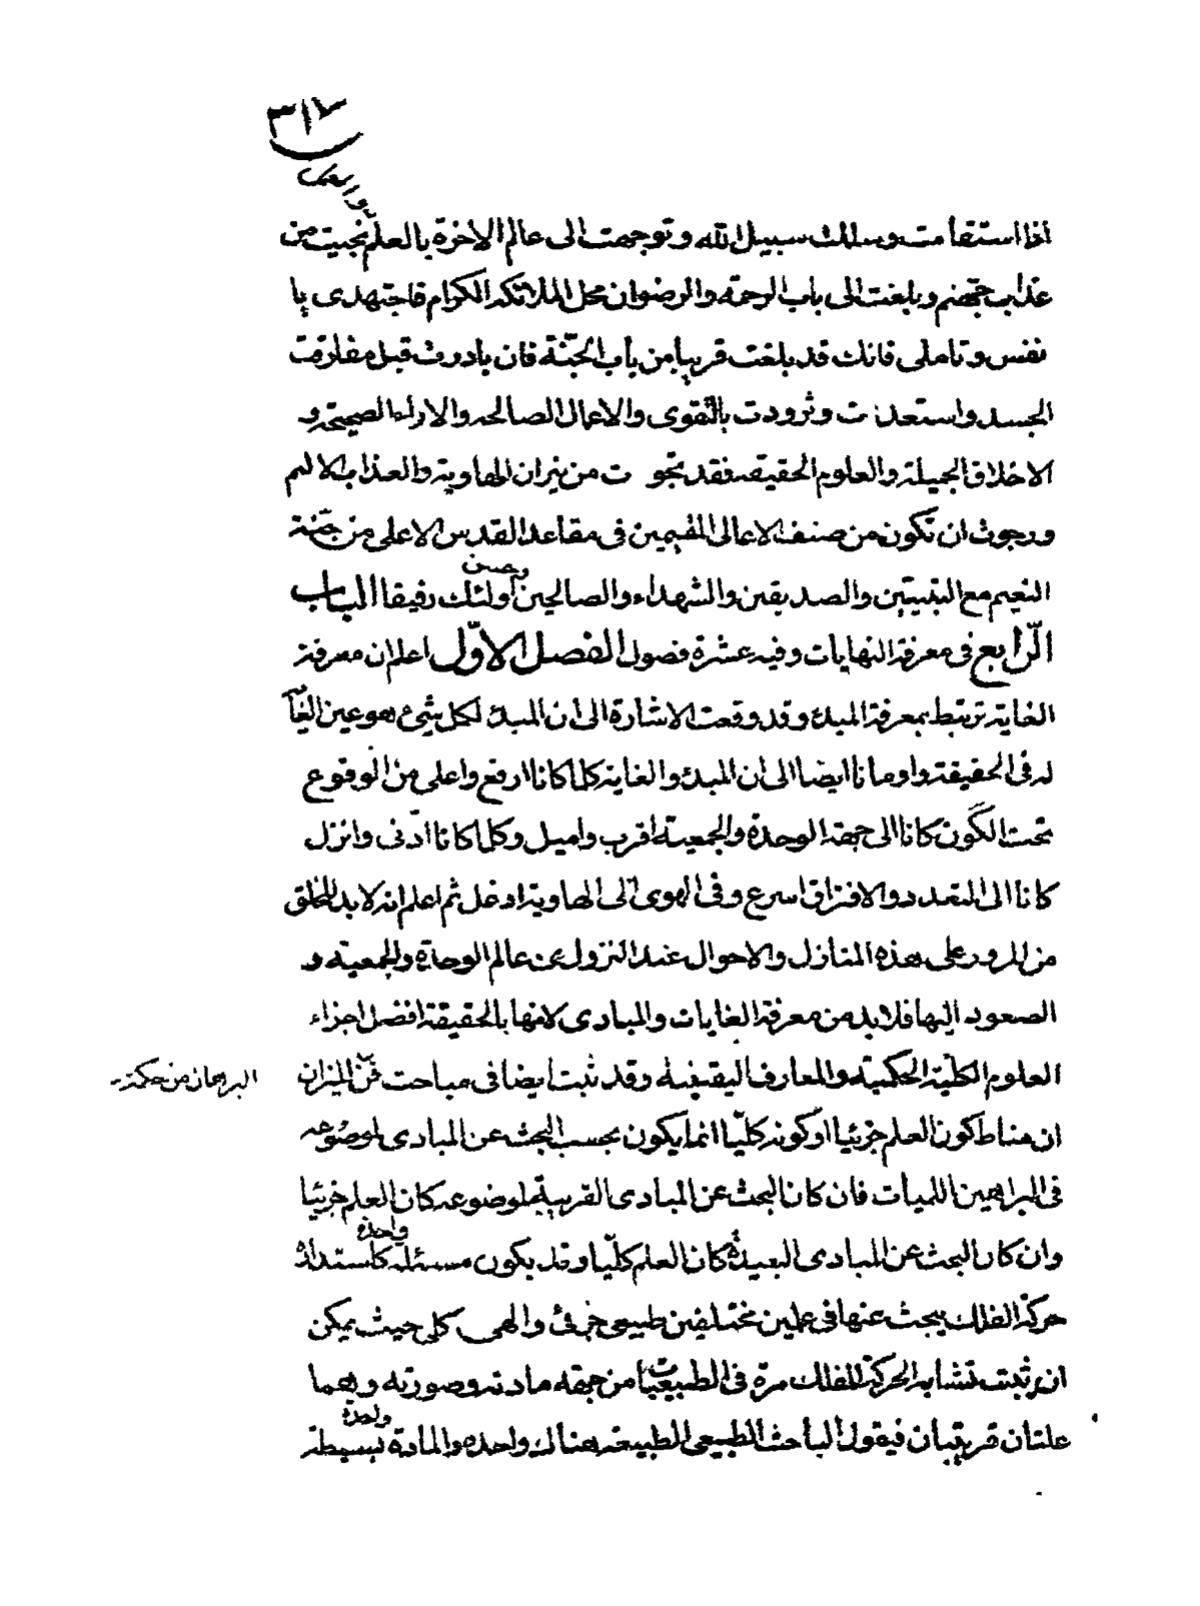 ٣١٧
والعمل
اذا استقامت وسلكت سبيل الله وتوجهت الى عالم الاخرة بالعلم نجيت من
عذاب جهنم وبلغت الى باب الرحمة والرضوان محل الملائكة الكرام فاجتهدى يا
نفس وتاملى فانك قد بلغت قريبا من باب الجنّة فان بادرت قبل مفارقت
الجسد واستعدت وتزودت بالتّقوى والاعمال الصالحه والاراء الصحيحة و
الاخلاق الجميلة والعلوم الحقيقه فقد نجوت من نيران الهاوية والعذاب الاليم
ورجوت ان تكون من صنف الاعالى المقيمين فى مقاعد القدس الاعلى من جنة
وحسن
النعيم مع النبيين والصديقين والشهداء والصالحين اولئك رفيقا الباب
الرّابع فى معرفة النهايات وفيه عشرة فصول الفصل الاوّل اعلم ان معرفة
الغاية ترتبط بمعرفة المبدء وقد وقعت الاشارة الى ان المبدء لكل شيئ هو عين الغآ
له فى الحقيقة واومانا ايضا الى ان المبدء والغاية كلما كانا ارفع واعلى من الوقوع
تحت الكون كانا الى جهة الوحدة والجمعية اقرب واميل وكلما كانا ادنى وانزل
كانا الى التعدد والافتراق اسرع وفى الهوى الى الهاوية ادخل ثم اعلم انه لابد للخلق
من المرور على هذه المنازل والاحوال عند النزول عن عالم الوحدة والجمعية و
الصعود اليها فلابد من معرفة الغايات والمبادى لانها بالحقيقة افضل اجزاء
العلوم الكلّية الحكمية والمعارف اليقينية وقد ثبت ايضا فى مباحث فنّ الميزان
البرهان من حكمة
ان مناط كون العلم جزئيا او كونه كلّيا انما يكون بحسب البحث عن المبادى لموضوعه
فى البراهين اللميات فان كان البحث عن المبادى القريبة لموضوعه كان العلم جزئيا
واحدة
وان كان البحث عن المبادى البعيدة كان العلم كلّيا وقد يكون مسئلة كاستدارة
حركة الفلك يبحث عنها فى علمين مختلفين طبيعى جزئى والهى كلى حيث يمكن
ان يثبت تشابه الحركة للفلك مرة فى الطبيعيات من جهة مادته وصورته وهما
واحدة
علتان قريبتان فيقول الباحث الطبيعى الطبيعة هناك واحده والمادة بسيطة